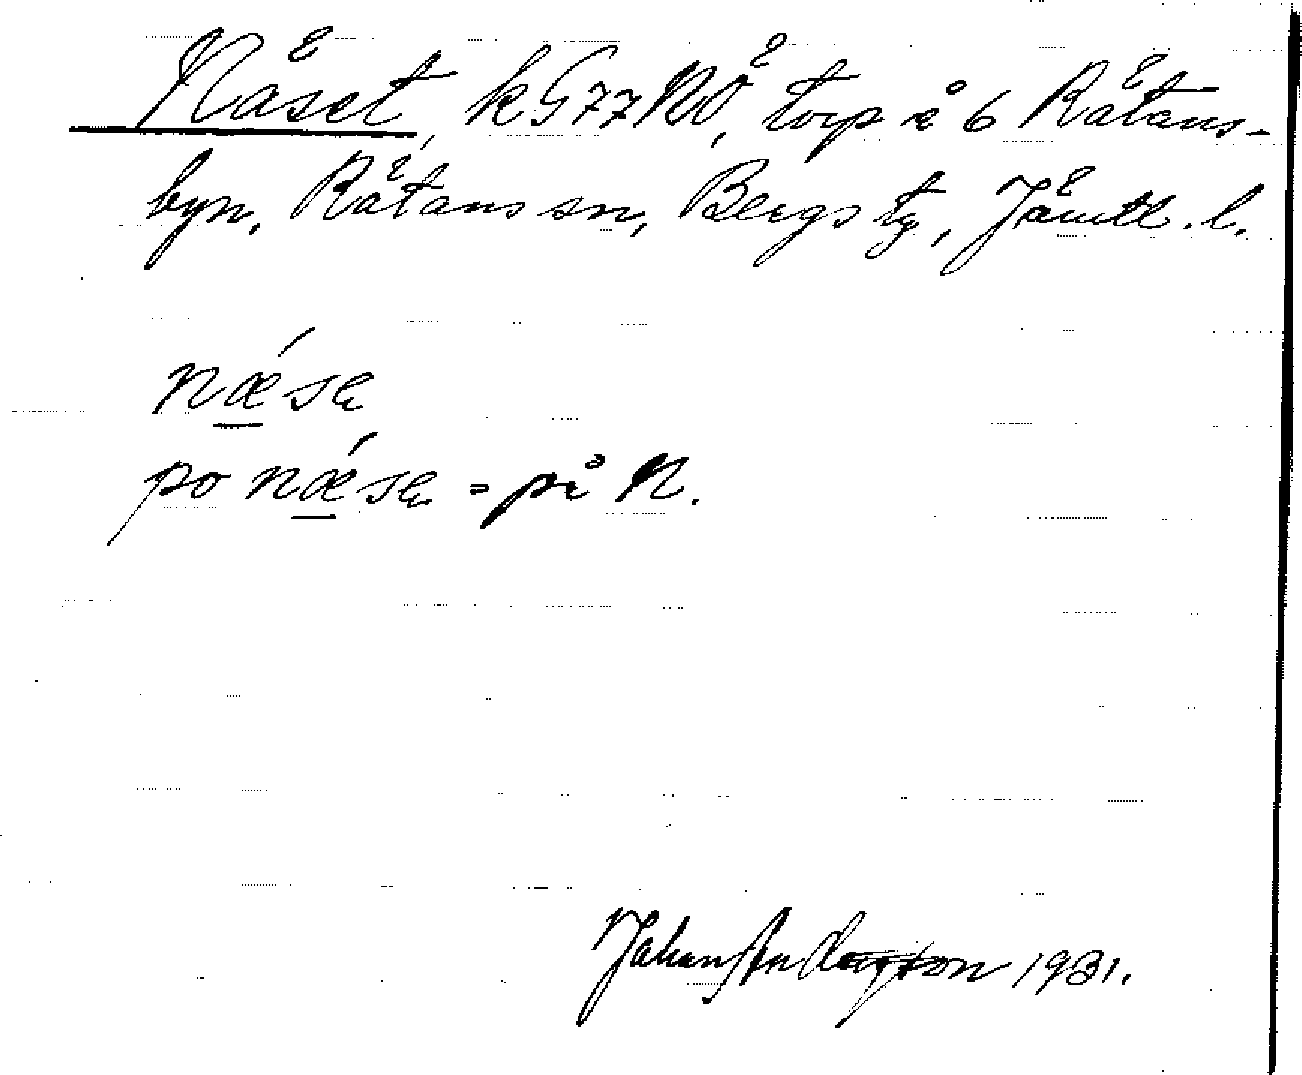 Näset, k G77NÖ, torp å 6 Rätans-
byn, Rätans sn, Bergs tg, Jämtl. l.
nǽ̲se̜
po nǽ̲se̜ = på N.
Johan Anderzson 1931.